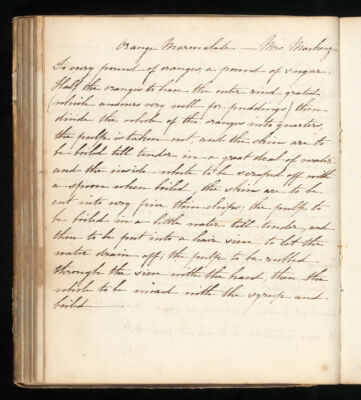 Orange Marmalade — Mrs.
To every pound of oranges, a pound of sugar.
Half the oranges to have the outer rind grated
(which answers very well for puddings) then
divide the whole of the oranges into quarters,
the pulp is taken out, and the skins are to
be boild till tender in a great deal of water
and the inside white to be scraped off with
a spoon when boild, the skins are to be
cut into very fine thin strips; the pulp to
be boiled in a little water till tender, and
then to be put into a hair sieve to let the
water drain off; the pulp to be rubbed
through the sieve with the hand, then the
whole to be mixed with the syrup and
boild